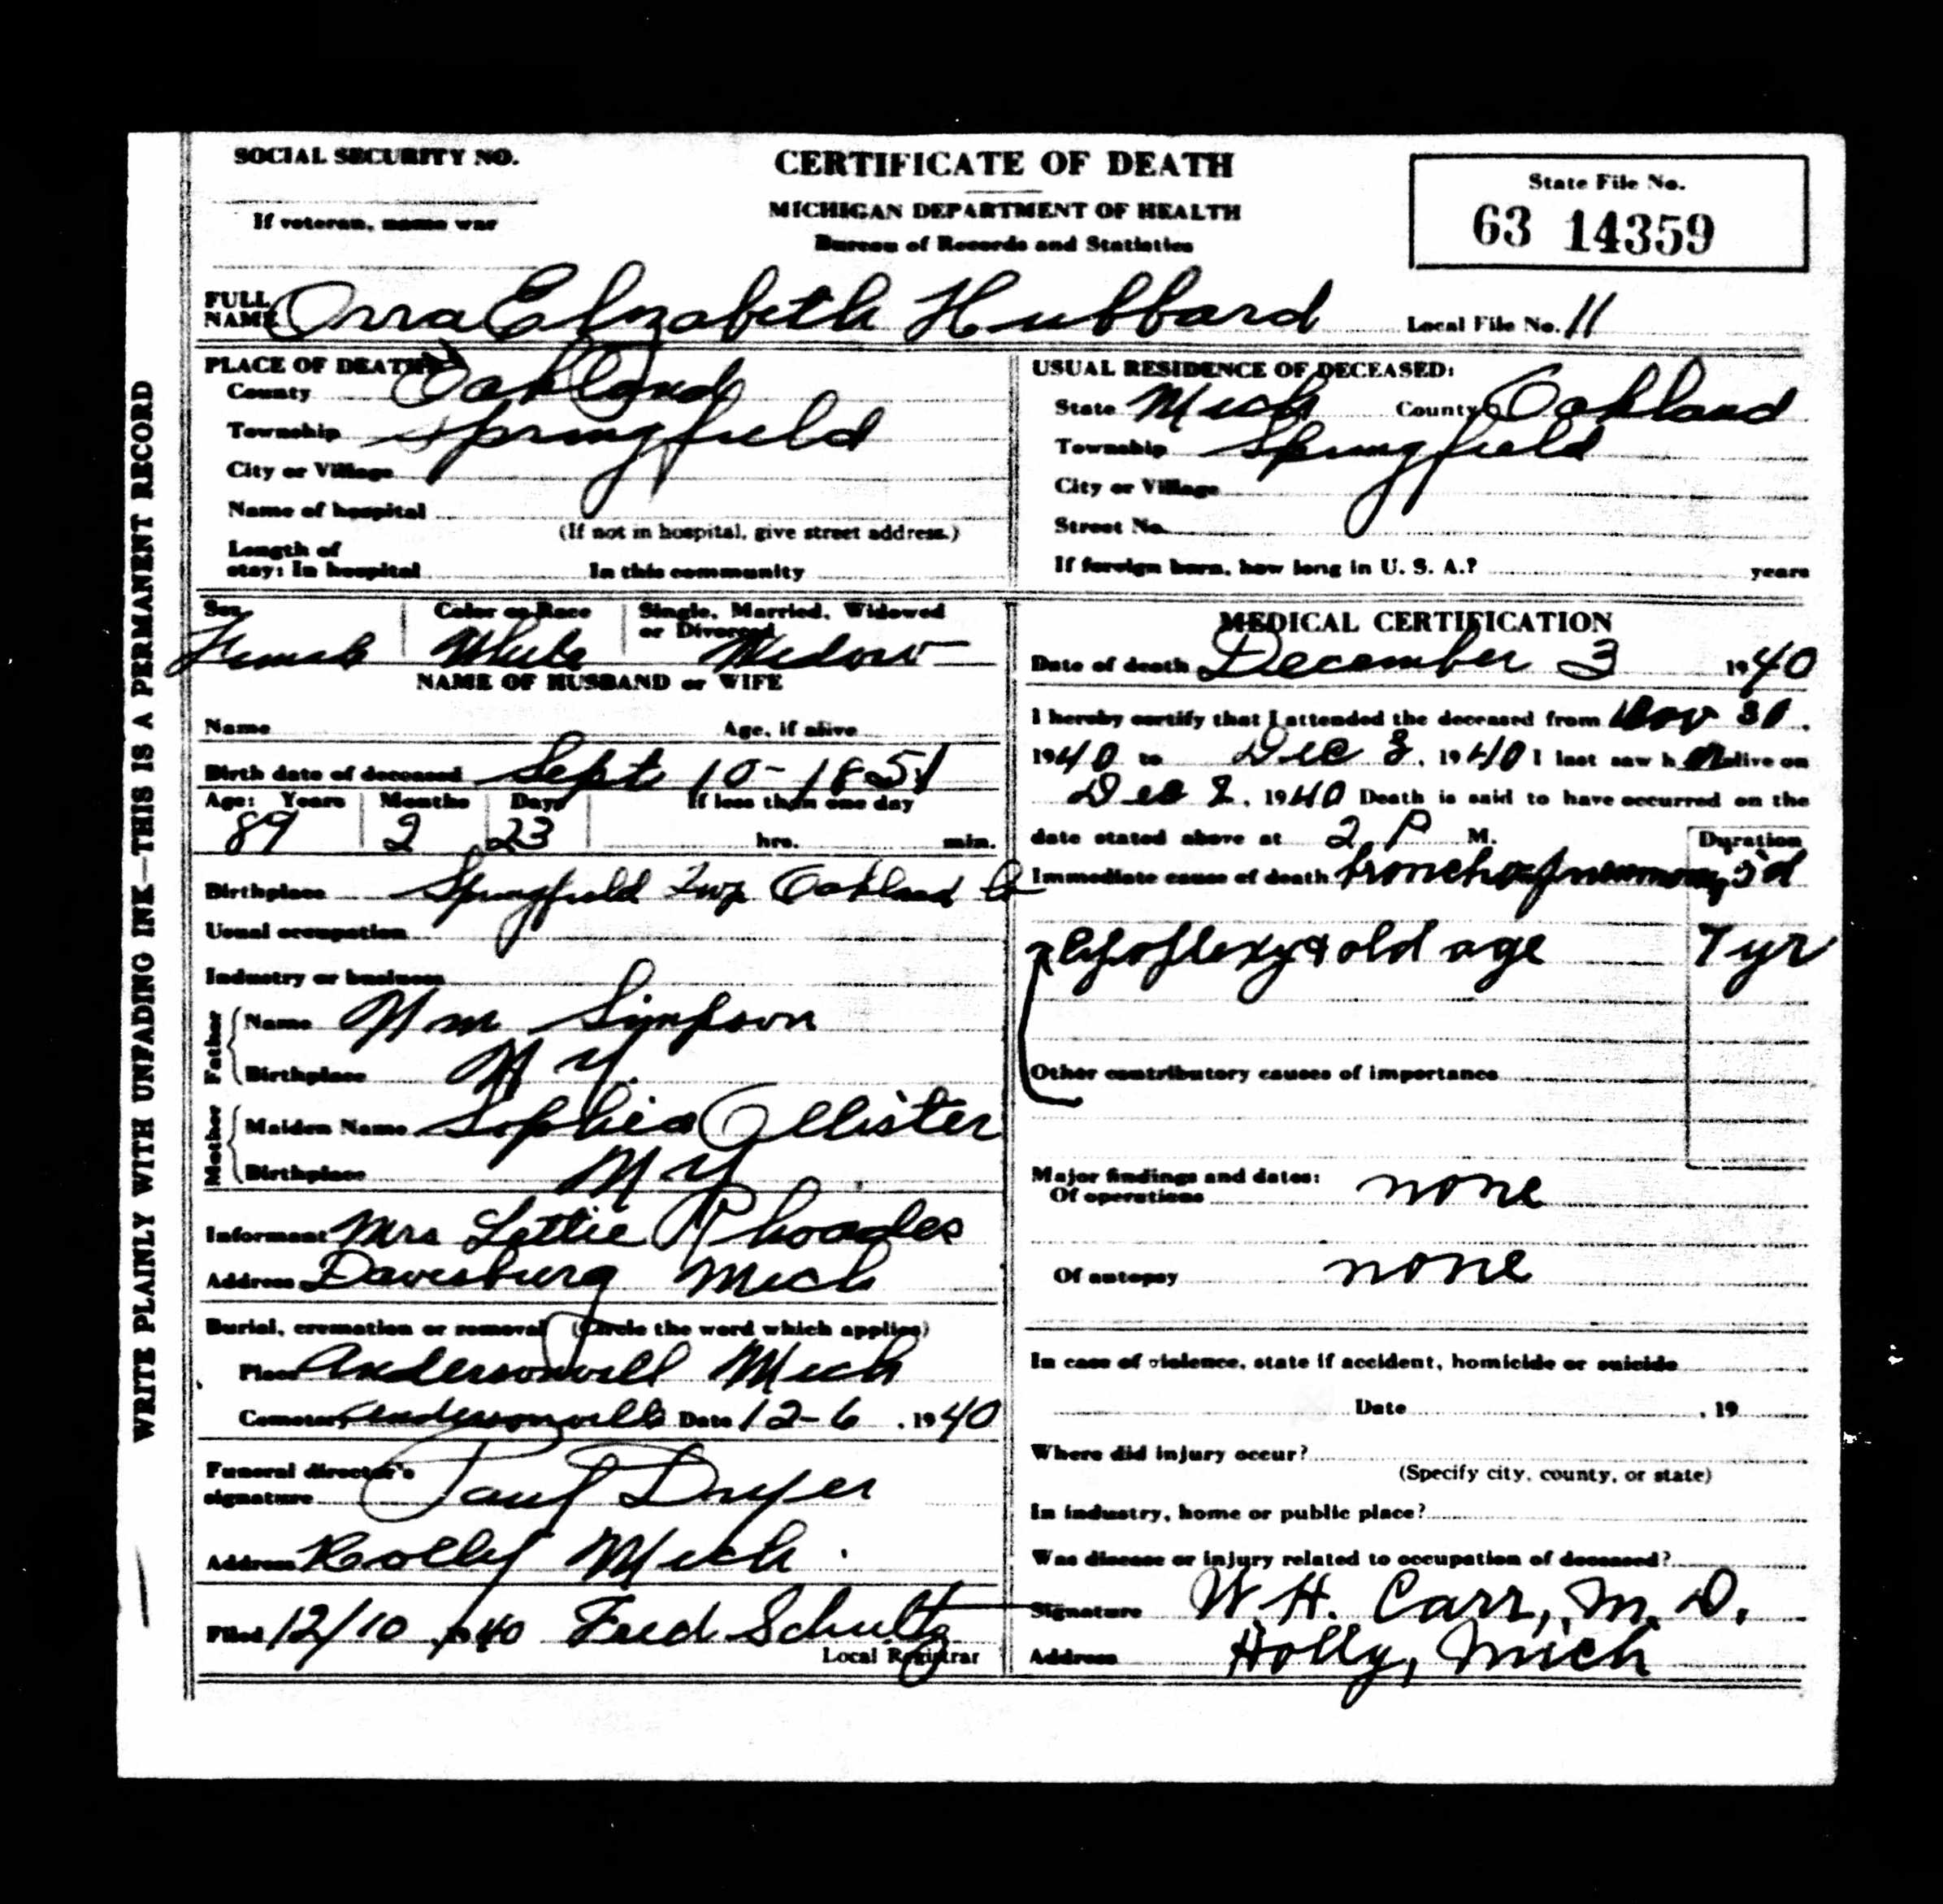 WRITE PLAINLY WITH UNFADING INK—THIS IS A PERMANENT RECORD
SOCIAL SECURITY NO.
If veteran, name war
CERTIFICATE OF DEATH
MICHIGAN DEPARTMENT OF HEALTH
Bureau of Records and Statistics
State File No.
63 14359
FULL NAME Orra Elizabeth Hubbard
Local File No. 11
PLACE OF DEATH:
County Oakland
Township Springfield
City or Village
Name of hospital
(If not in hospital, give street address.)
Length of stay: In hospital In this community
USUAL RESIDENCE OF DECEASED:
State Mich County Oakland
Township Springfield
City or Village
Street No.
If foreign born, how long in U. S. A.? years
Sex Color or Race Single, Married, Widowed or Divorced
Female White Widow
NAME OF HUSBAND or WIFE
Name Age, if alive
Birth date of deceased Sept 10-1851
Age: Years Months Days If less than one day
89 2 23 hrs. min.
Birthplace Springfield Twp Oakland Co
Usual occupation
Industry or business
Father
Name Wm Simpson
Birthplace N Y.
Mother
Maiden Name Sophia
Birthplace N Y
Informant Mrs Lettie Rhoades
Address Davisburg Mich
Burial, cremation or removal (Circle the word which applies)
Place Andersonvill Mich
Cemetery Andersonville Date 12-6, 1940
Funeral director's signature Paul Dryer
Address Holly Mich.
Filed 12/10 1940 Fred Schultz
Local Registrar
MEDICAL CERTIFICATION
Date of death December 3 1940
I hereby certify that I attended the deceased from Nov 30,
1940 to Dec 3, 1940 I last saw h er alive on
Dec 2, 1940 Death is said to have occurred on the
date stated above at 2 P M.
Duration
Immediate cause of death broncho-pneumonia
apoplexy & old age
yr
Other contributory causes of importance
Major findings and dates:
Of operations none
Of autopsy none
In case of violence, state if accident, homicide or suicide
Date , 19
Where did injury occur?
(Specify city, county, or state)
In industry, home or public place?
Was disease or injury related to occupation of deceased?
Signature W. H. Carr, M. D.
Address Holly, Mich